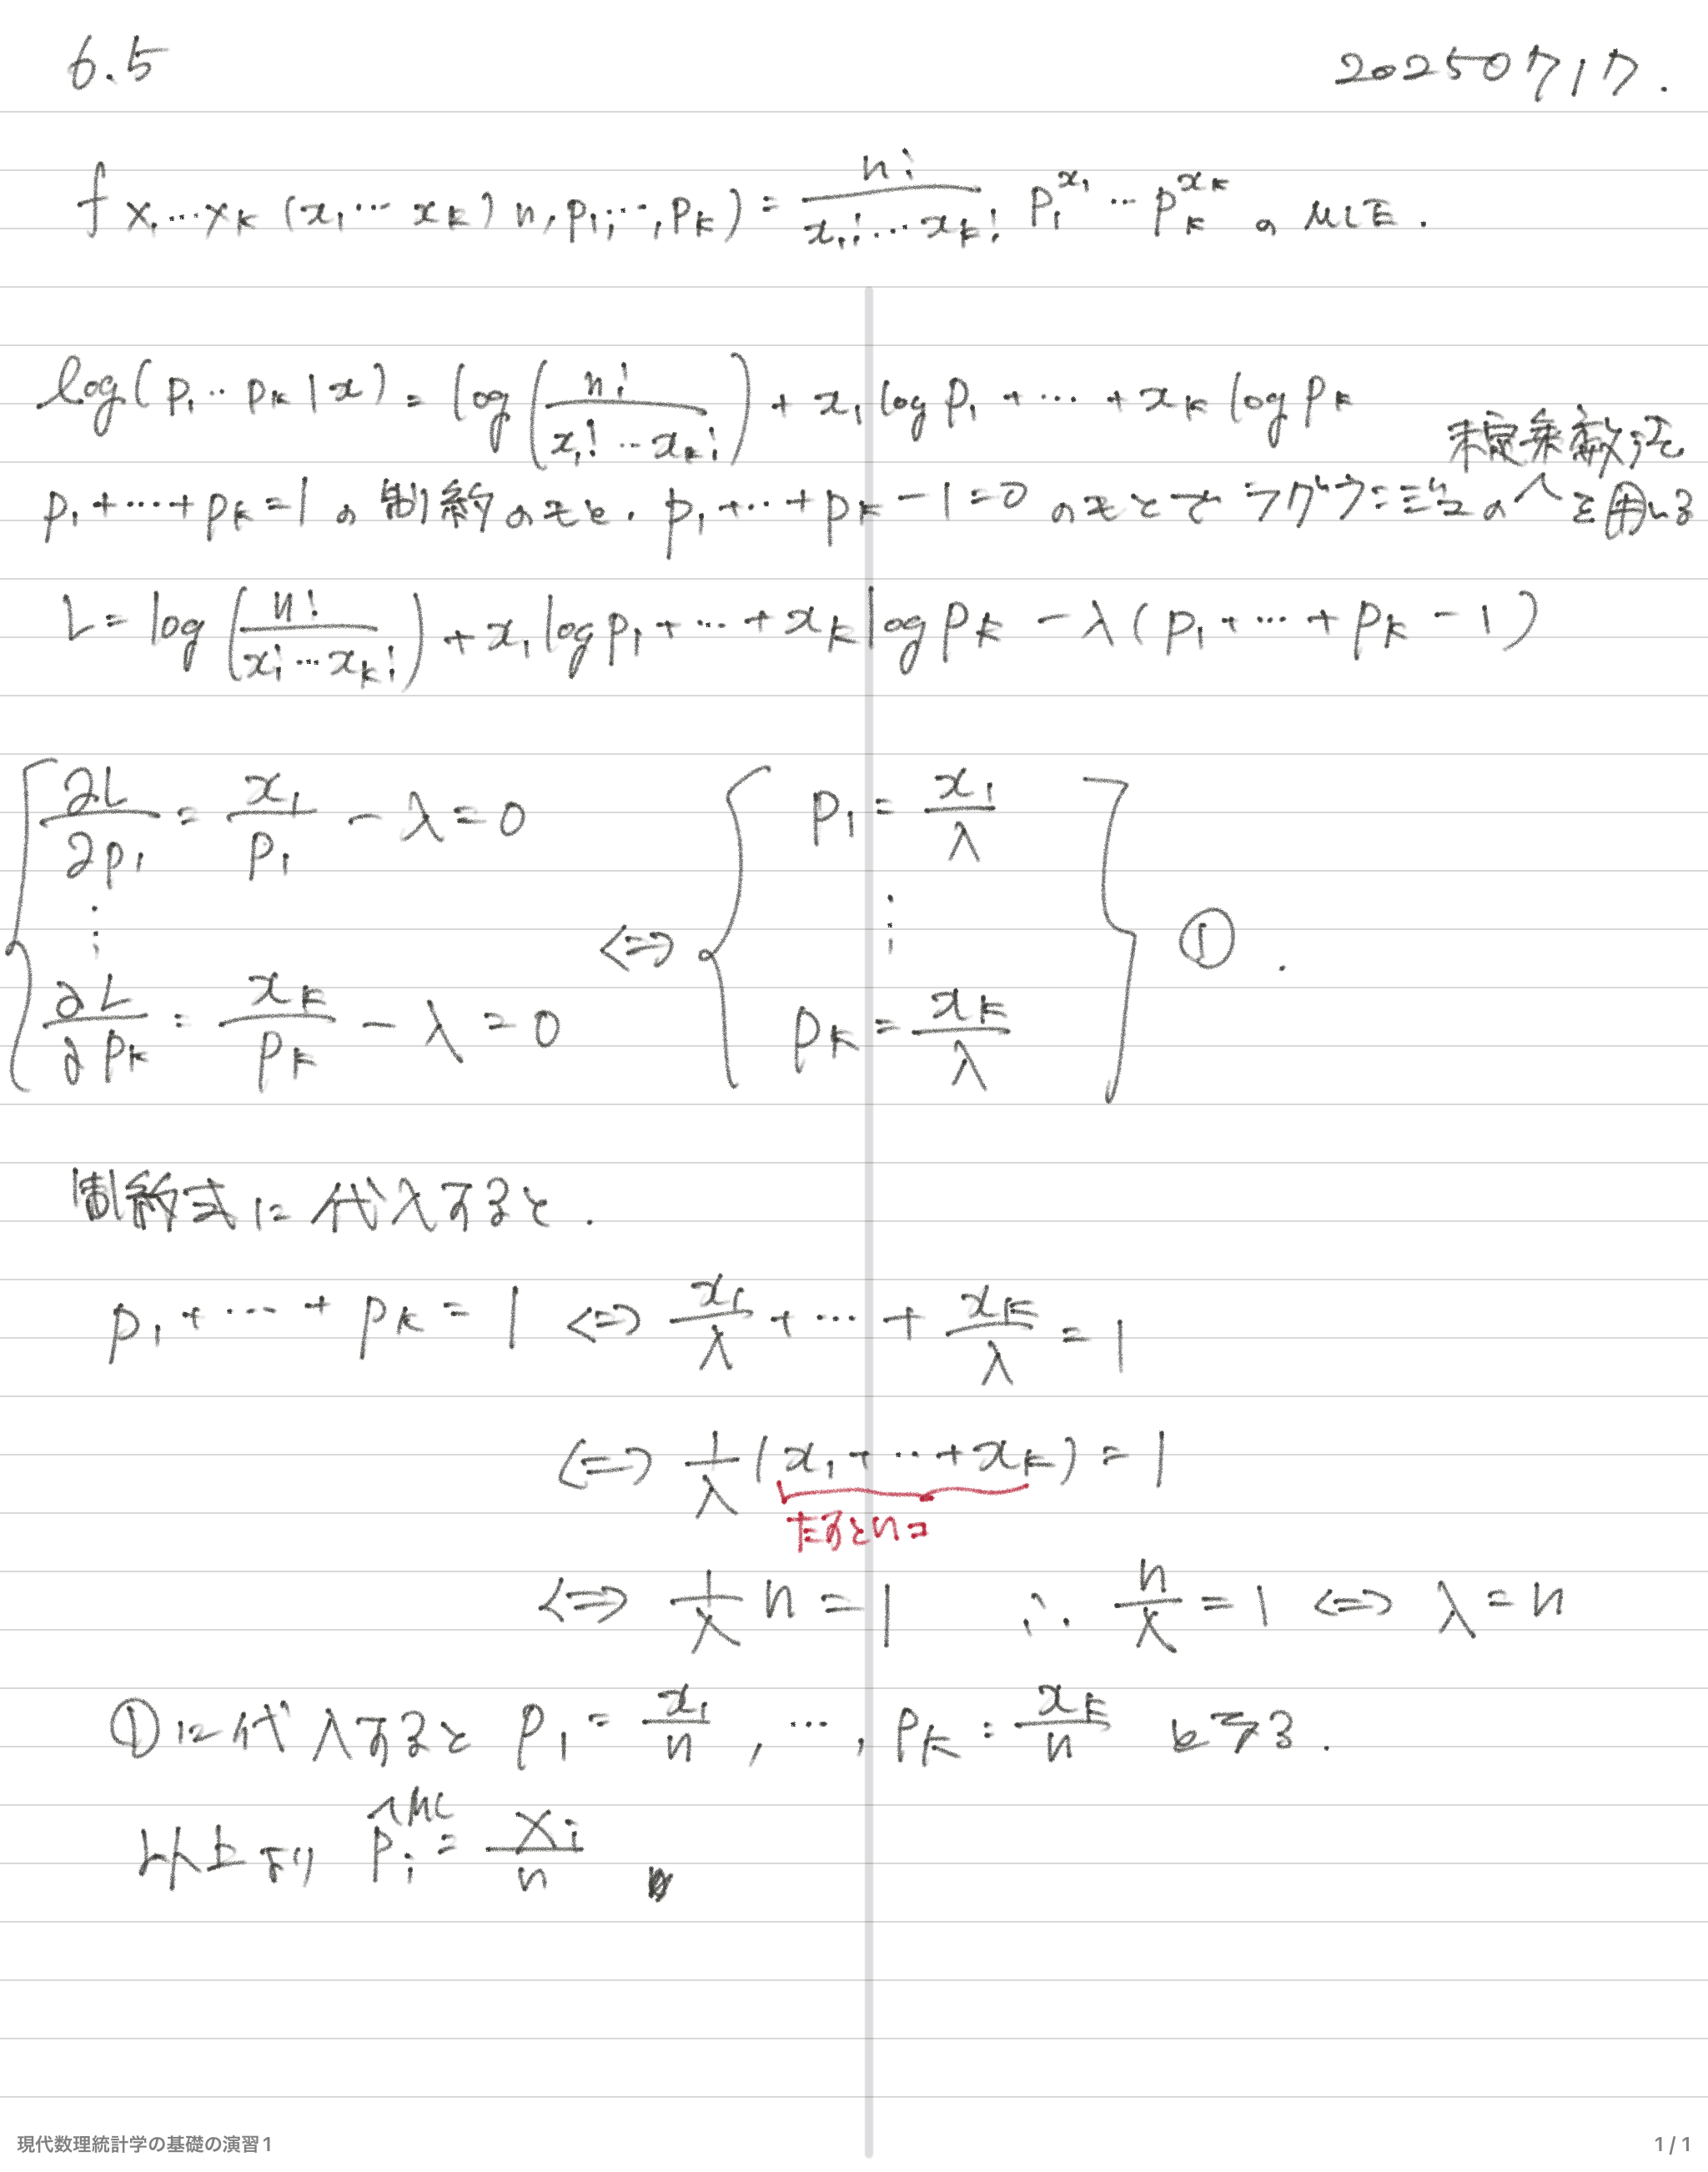 6.5
20250717.
f X₁…X_k (x₁…x_k | n, p₁, …, p_k) = n! / (x₁!…x_k!) p₁^x₁ … p_k^x_k の MLE.
log(p₁…p_k | x) = log(n! / (x₁!…x_k!)) + x₁ log p₁ + … + x_k log p_k
p₁+…+p_k=1 の制約のもと. p₁+…+p_k −1=0 のもとでラグランジュの未定乗数法を用いる
L = log(n! / (x₁!…x_k!)) + x₁ log p₁ + … + x_k log p_k − λ(p₁+…+p_k − 1)
∂L/∂p₁ = x₁/p₁ − λ = 0
⋮
∂L/∂p_k = x_k/p_k − λ = 0
⇔
p₁ = x₁/λ
⋮
p_k = x_k/λ
①.
制約式に代入すると.
p₁+…+p_k = 1 ⇔ x₁/λ + … + x_k/λ = 1
⇔ 1/λ (x₁+…+x_k) = 1
たすとnコ
⇔ 1/λ n = 1 ∴ n/λ = 1 ⇔ λ = n
①に代入すると p₁ = x₁/n, …, p_k = x_k/n となる.
以上より p̂ᵢ^ML = Xᵢ/n
現代数理統計学の基礎の演習1
1 / 1